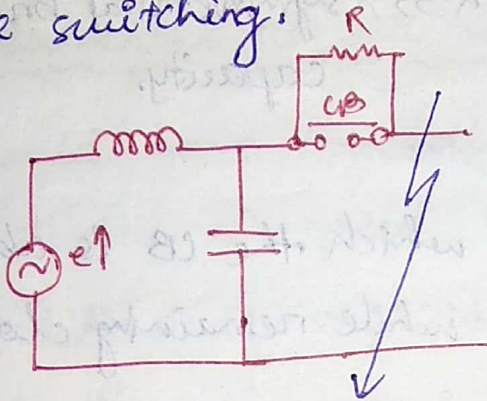 e switching.
R
CB
e↑